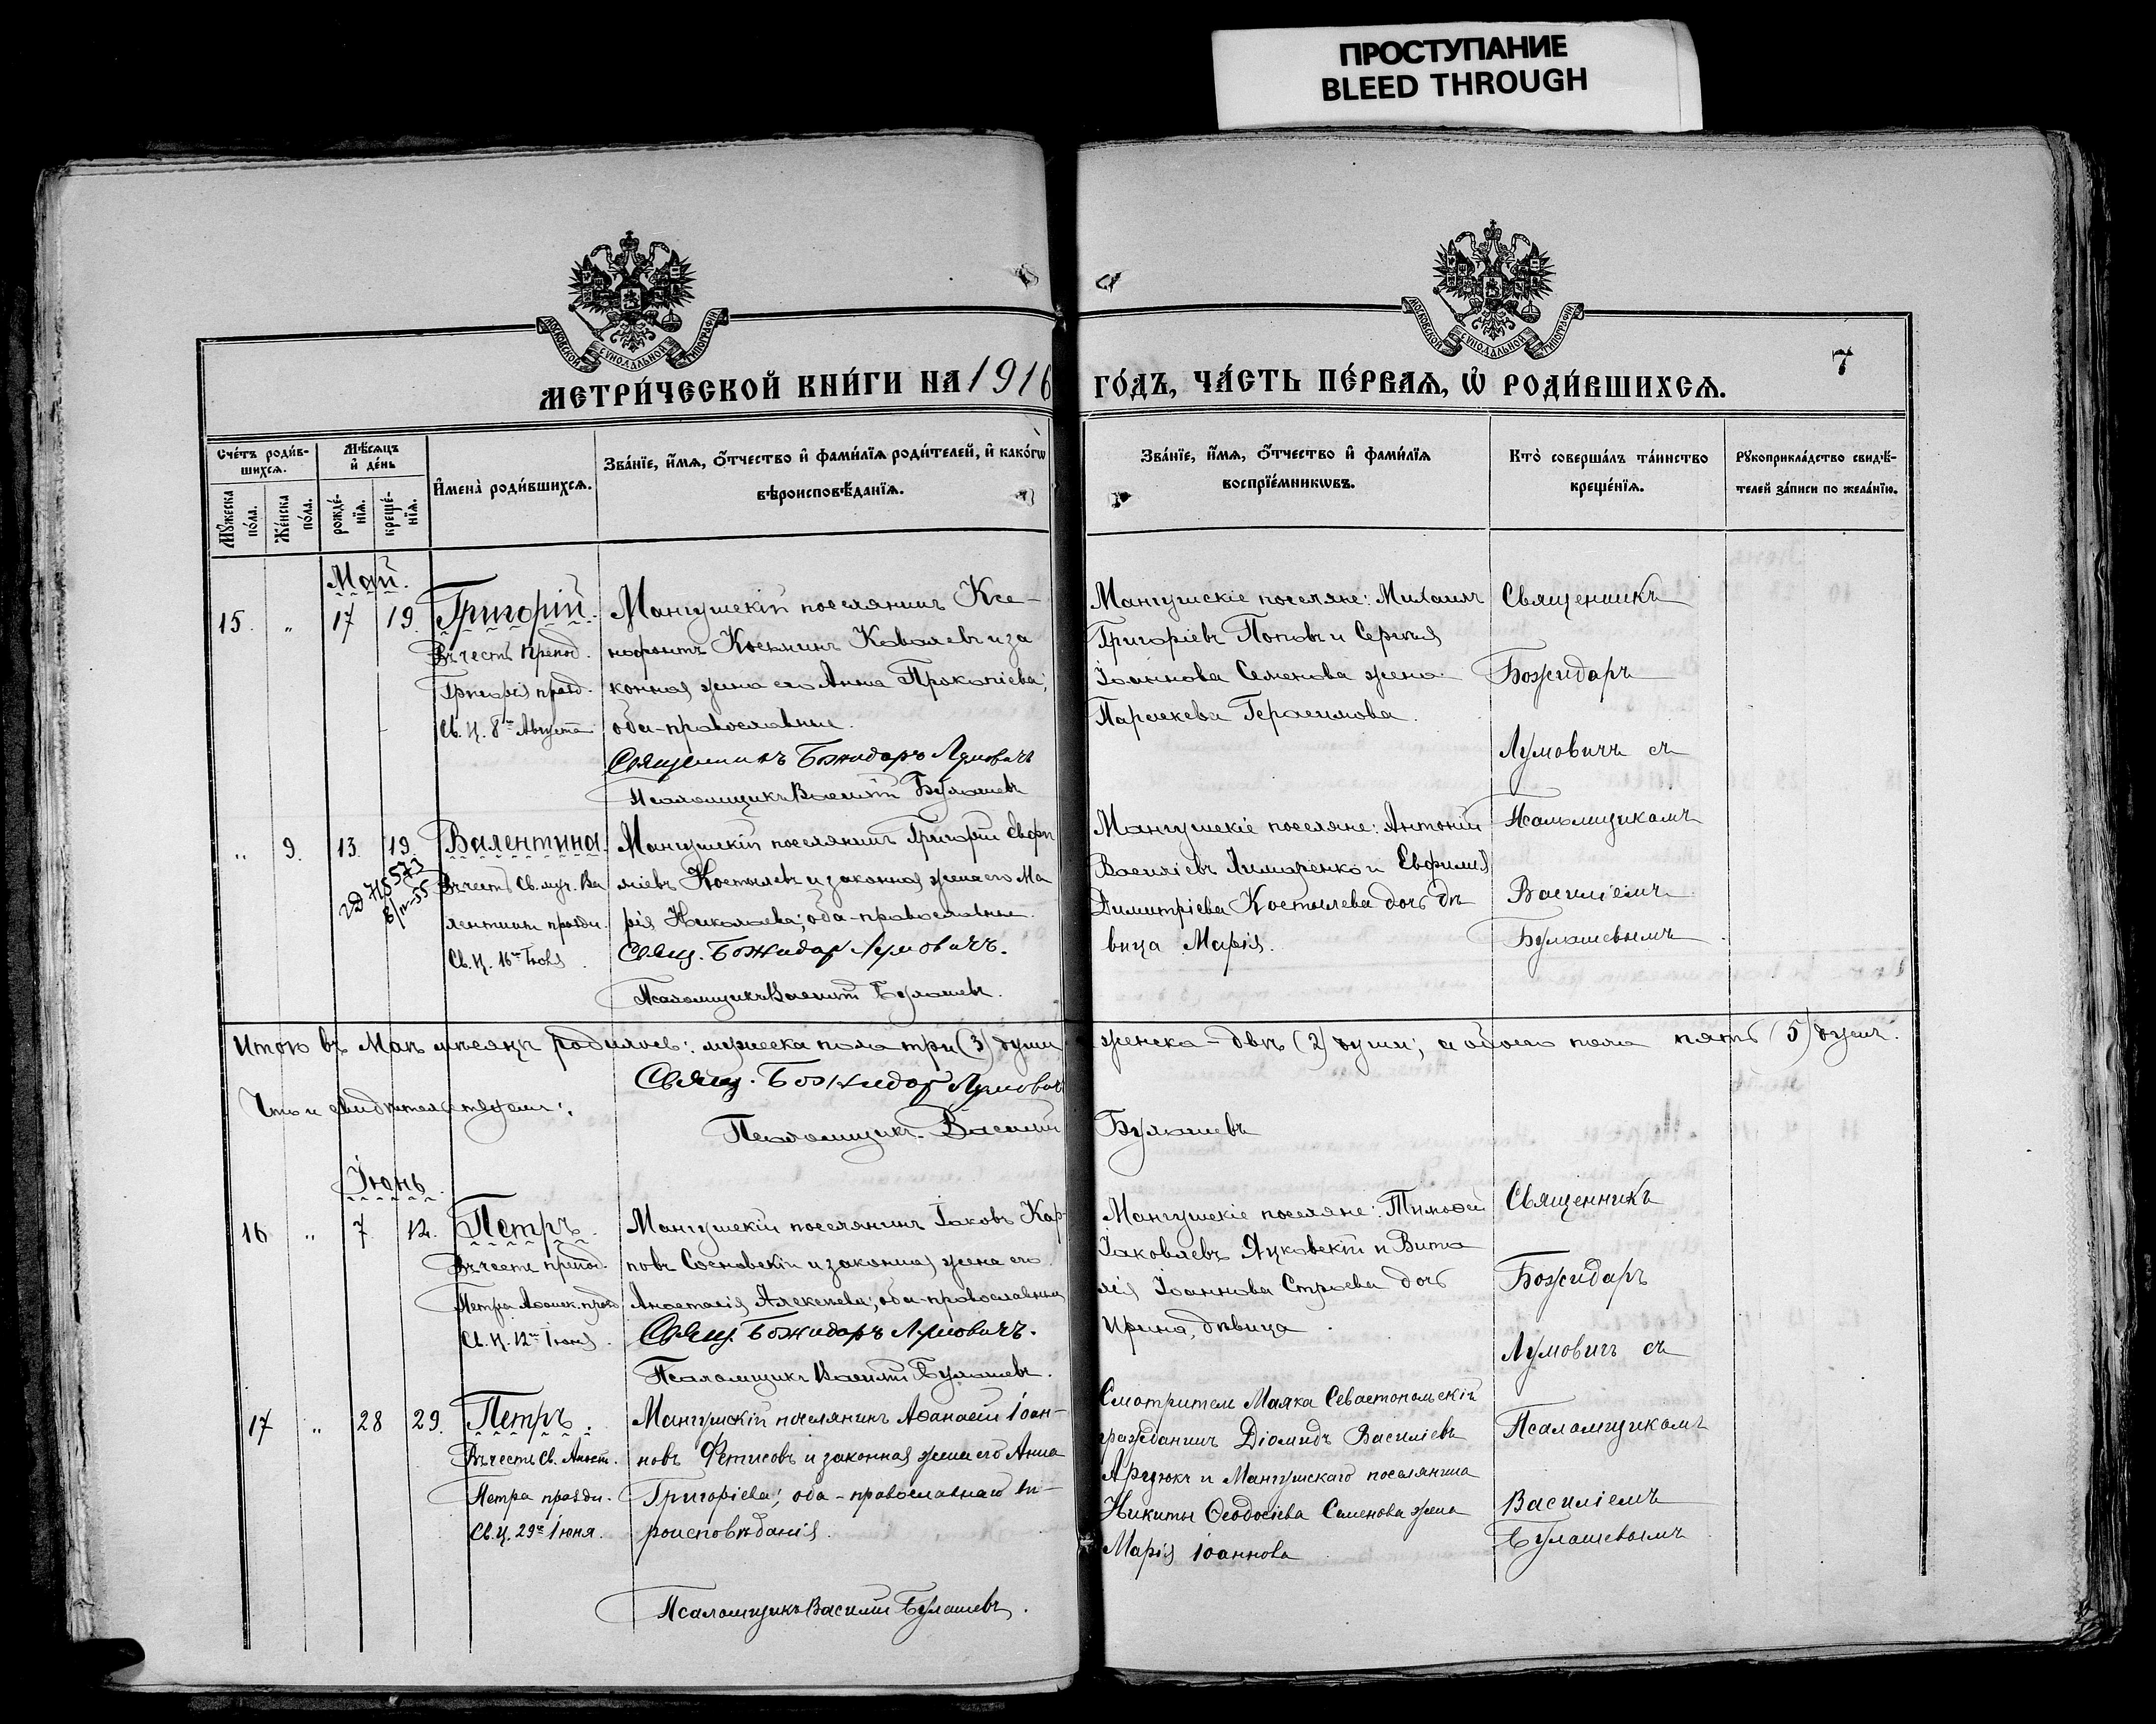 ПРОСТУПАНИЕ
BLEED THROUGH
МОСКОВСКОЙ СѴНОДАЛЬНОЙ ТИПОГРАФІИ
МОСКОВСКОЙ СѴНОДАЛЬНОЙ ТИПОГРАФІИ
7
МЕТРИ́ЧЕСКОЙ КНИ́ГИ НА 1916 ГО́ДЪ, ЧА́СТЬ ПЕ́РВАЯ, Ѡ҆ РОДИ́ВШИХСЯ.
Сче́тъ роди́в-
шихся.
Мѹ́жеска по́ла.
Же́нска по́ла.
Мѣ́сяцъ и҆ де́нь
рожде́-
нїя.
креще́-
нїя.
И҆мена̀ роди́вшихся.
Зва́нїе, и҆́мя, ѻ҆́тчество и҆ фами́лїя роди́телей, и҆ како́гѡ
вѣроисповѣ́данїя.
Зва́нїе, и҆́мя, ѻ҆́тчество и҆ фами́лїя
воспрїе́мникѡвъ.
Кто̀ соверша́лъ та́инство
креще́нїя.
Рѹкоприкла́дство свидѣ́-
телей за́писи по жела́нїю.
Май.
15. „ 17 19. Григорій.
Въ честь препод.
Григорія празд.
Св. Ц. 8го Августа
Мангушскій поселянинъ Ксе-
нофонтъ Косминъ Ковалевъ и за
конная жена его Анна Прокопіева;
оба-православные.
Священникъ Божидаръ Лумовичъ
Псаломщикъ Василій Булашевъ
Мангушскіе поселяне: Михаилъ
Григоріевъ Поповъ и Сергѣя
Іоаннова Семенова жена
Параскева Герасимова.
Священникъ
Божидаръ
Лумовичъ съ
Псаломщикомъ
Василіемъ
Булашевымъ
„ 9. 13. 19. Валентина.
Въ честь Св. муч. Ва
лентины праздн.
Св. Ц. 16го Іюля
Мангушскій поселянинъ Григорій Евфи
міевъ Костылевъ и законная жена его Ма
рія Николаева; оба-православные.
Свящ. Божидар Лумовичъ.
Псаломщикъ Василій Булашевъ.
Мангушскіе поселяне: Антоній
Василіевъ Лимаренко и Евфимія
Димитріева Костылева дочь дѣ
вица Марія.
Итого въ Маѣ мѣсяцѣ родилось: мужеска пола три (3) души женска - двѣ (2) души; а обоего пола пять (5) душъ.
Что и свидѣтельствуемъ:
Свящ. Божидар Лумовичъ
Псаломщикъ Василій Булашевъ
Іюнь
16 „ 7 12. Петръ.
Въ честь препод.
Петра Аѳонск. празд
Св. Ц. 12го Іюня.
Мангушскій поселянинъ Іаковъ Кар-
повъ Сосновскій и законная жена его
Анастасія Алексѣева; оба-православные
Свящ. Божидаръ Лумовичъ.
Псаломщикъ Василій Булашевъ.
Мангушскіе поселяне: Тимоѳей
Іаковлевъ Яцковскій и Вита
лія Іоаннова Строева дочь
Ирина, дѣвица.
Священникъ
Божидаръ
Лумовичъ съ
Псаломщикомъ
Василіемъ
Булашевымъ
17 „ 28 29. Петръ.
Въ честь Св. Апост.
Петра праздн.
Св. Ц. 29го Іюня.
Мангушскій поселянинъ Аѳанасій Іоан-
новъ Фетисовъ и законная жена его Анна
Григоріева; оба - православнаго вѣ-
роисповѣданія.
Псаломщикъ Василій Булашевъ.
Смотритель Маяка Севастопольскій
гражданинъ Діомидъ Василіевъ
и Мангушскаго поселянина
Никиты Ѳеодосіева Семенова жена
Марія Іоаннова